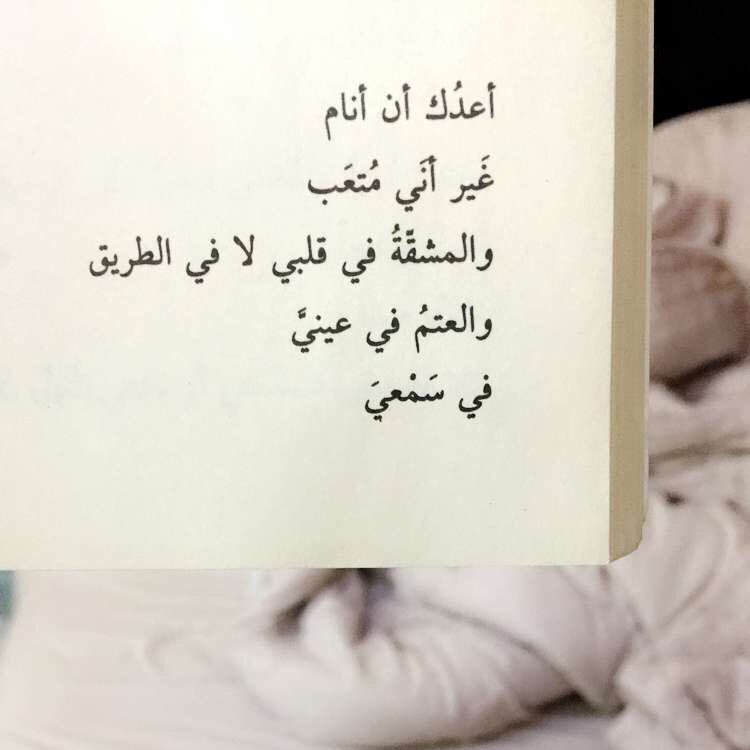 أعدُك أن أنام
غَير أنَي مُتعَب
والمشقَّةُ في قلبي لا في الطريق
والعتمُ في عينيَّ
في سَمْعيَ